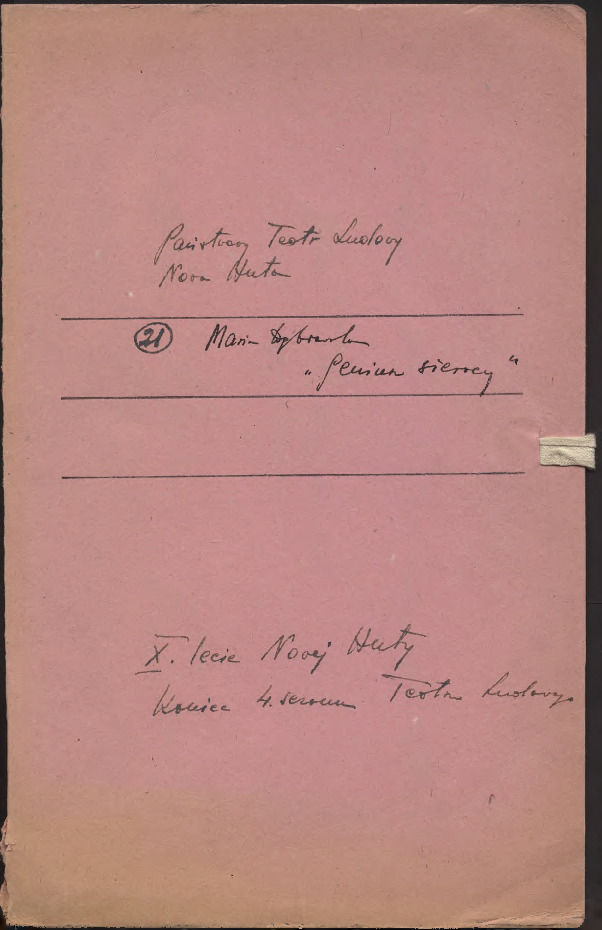 Państwowy Teatr Ludowy
Nowa Huta
21 Maria Dąbrowska
„Geniusz sierocy"
X. lecie Nowej Huty
Koniec 4. sezonu Teatru Ludowego